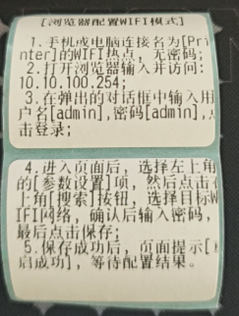 [浏览器配置WIFI模式]
1.手机或电脑连接名为[Pri
nter]的WIFI热点，无密码;
2.打开浏览器输入并访问:
10.10.100.254;
3.在弹出的对话框中输入用
户名[admin],密码[admin],点
击登录;
4.进入页面后，选择左上角
的[参数设置]项，然后点击右
上角[搜索]按钮，选择目标W
IFI网络，确认后输入密码，
最后点击保存;
5.保存成功后，页面提示[
启成功]，等待配置结果。